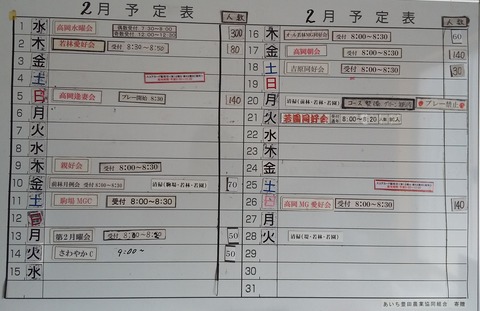 2月予定表
人数
1 水 高岡水曜会 300
2 木 若林愛好会 受付 8:30~8:50 80
3 金
4 土
5 日 高岡逢妻会 プレー開始 8:30 140
6 月
7 火
8 水
9 木 親好会 受付 8:00~8:30
10 金 前林月例会 受付 8:00~8:30 清掃(駒場・若林・若園) 70
11 土 駒場MGC 受付 8:00~8:30
12 日
13 月 第2月曜会 50
14 火 さわやかC 9:00~ 50
15 水
2月予定表
人数
16 木 60
17 金 高岡朝会 受付 8:00~8:30 140
18 土 吉原同好会 受付 8:00~8:30
19 日
20 月 プレー禁止
21 火 若園同好会 8:00~8:20
22 水
23 木
24 金
25 土
26 日 高岡MG愛好会 受付 8:00~8:30 140
27 月
28 火 清掃(堤・若林・若園)
29
30
31
あいち豊田農業協同組合 寄贈